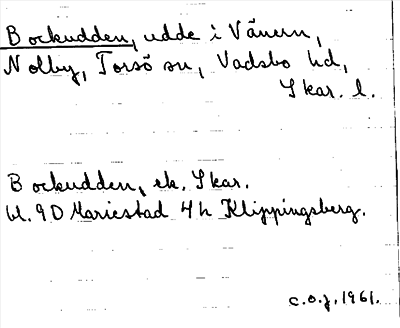 Bockudden, udde i Vänern,
Nolby, Torsö sn, Vadsbo hd,
Skar. l.
Bockudden, ek. Skar.
bl. 9D Mariestad 4h Klippingsberg.
c.o.j. 1961.